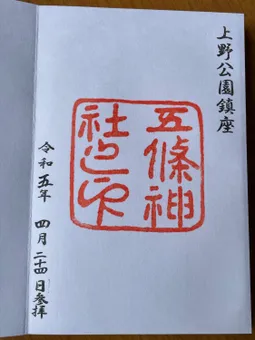 上野公園鎮座
五條神
社之印
令和五年 四月二十四日参拝